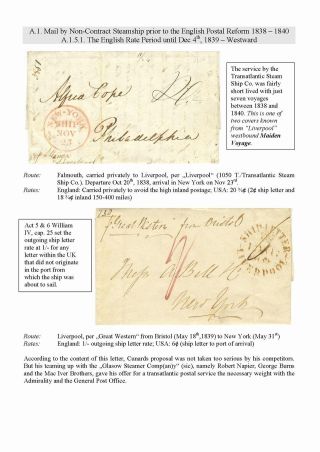 A.1. Mail by Non-Contract Steamship prior to the English Postal Reform 1838 – 1840
A.1.5.1. The English Rate Period until Dec 4th, 1839 – Westward
The service by the
Transatlantic Steam
Ship Co. was fairly
short lived with just
seven voyages
between 1838 and
1840. This is one of
two covers known
from "Liverpool"
westbound Maiden
Voyage.
Alfred Cope
NEW-YORK
SHIP
NOV
23
Philadelphia
Route: Falmouth, carried privately to Liverpool, per „Liverpool“ (1050 T./Transatlantic Steam
Ship Co.). Departure Oct 20th, 1838, arrival in New York on Nov 23rd.
Rates: England: Carried privately to avoid the high inland postage; USA: 20 ¾¢ (2¢ ship letter and
18 ¾¢ inland 150-400 miles)
Act 5 & 6 William
IV, cap. 25 set the
outgoing ship letter
rate at 1/- for any
letter within the UK
that did not originate
in the port from
which the ship
was about to sail.
p Great Western from Bristol
SHIP LETTER
LIVERPOOL
Mess A. Bell & Co
New York
Route: Liverpool, per „Great Western“ from Bristol (May 18th,1839) to New York (May 31st)
Rates: England: 1/- outgoing ship letter rate; USA: 6¢ (ship letter to port of arrival)
According to the content of this letter, Cunards proposal was not taken too serious by his competitors.
But his teaming up with the „Glasow Steamer Comp(an)y“ (sic), namely Robert Napier, George Burns
and the Mac Iver Brothers, gave his offer for a transatlantic postal service the necessary weight with the
Admirality and the General Post Office.